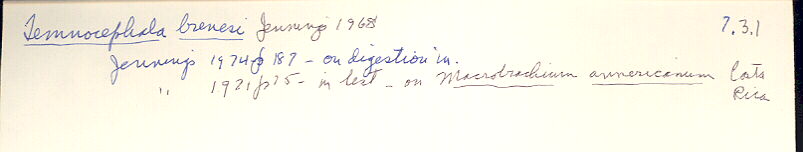 Temnocephala brenesi Jennings 1968 7.3.1
Jennings 1974 p 187 - on digestion in.
" 1971 p 75 - in text - on Macrobrachium americanum Costa
Rica